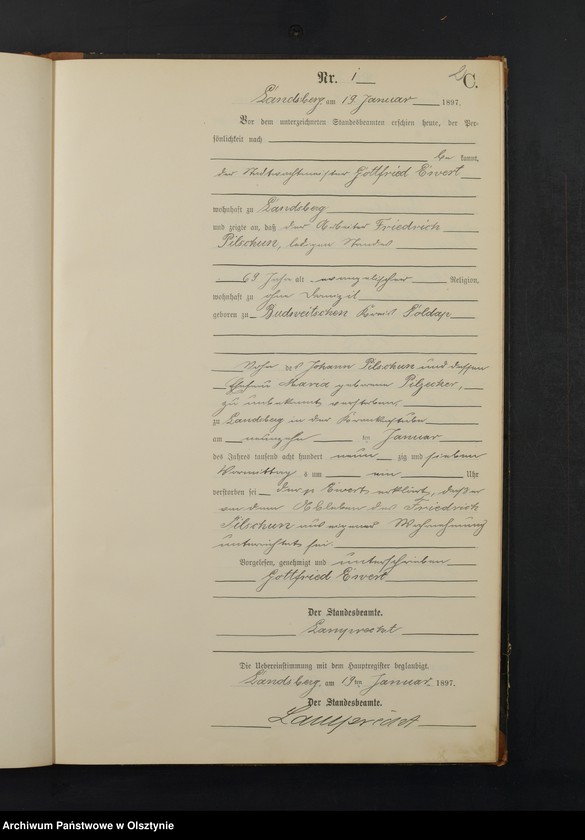 Nr. 1
C.
Landsberg, am 19 Januar 1897.
Vor dem unterzeichneten Standesbeamten erschien heute, der Per-
sönlichkeit nach
be kannt,
der Stadtwachtmeister Gottfried Ewert
wohnhaft zu Landsberg
und zeigte an, daß der Arbeiter Friedrich
Pilschun, ledigen Standes
69 Jahr alt, evangelischer Religion,
wohnhaft zu ohne Domizil
geboren zu Budweitschen Kreis Goldap
Sohn des Johann Pilschun und dessen
Ehefrau Maria geborene Pilzecker,
zu unbekannt verstorben
zu Landsberg in der Krankenstube
am neunzehn ten Januar
des Jahres tausend acht hundert neun zig und sieben
Vormittag s um ein Uhr
verstorben sei der p Ewert erklärt, daß er
von dem Ableben des Friedrich
Pilschun aus eigener Wahrnehmung
unterrichtet sei.
Vorgelesen, genehmigt und unterschrieben
Gottfried Ewert
Der Standesbeamte.
Lamprecht
Die Uebereinstimmung mit dem Hauptregister beglaubigt.
Landsberg, am 19ten Januar 1897.
Der Standesbeamte.
Lamprecht
Archiwum Państwowe w Olsztynie